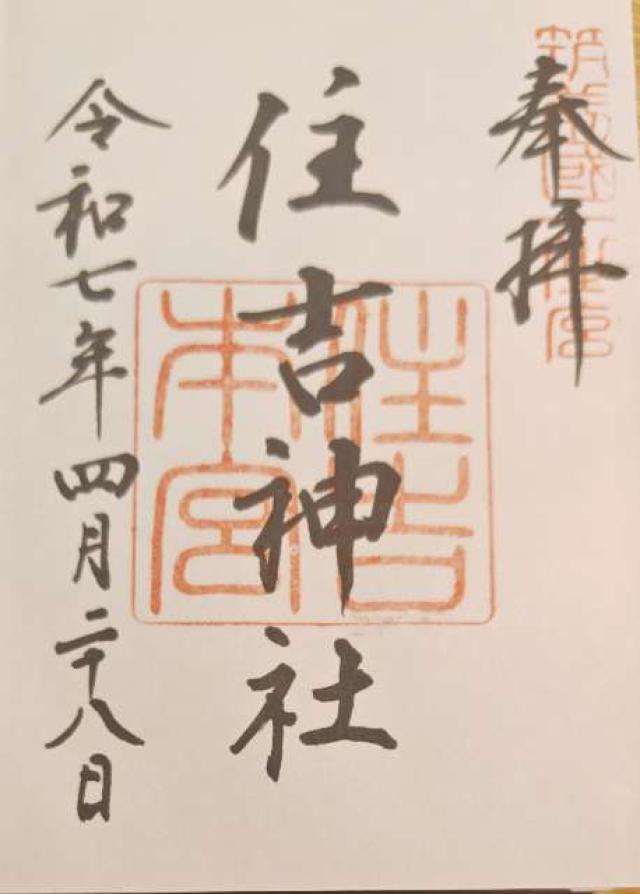 奉拝
筑前國一宮
住吉神社
住吉
本宮
令和七年四月二十八日